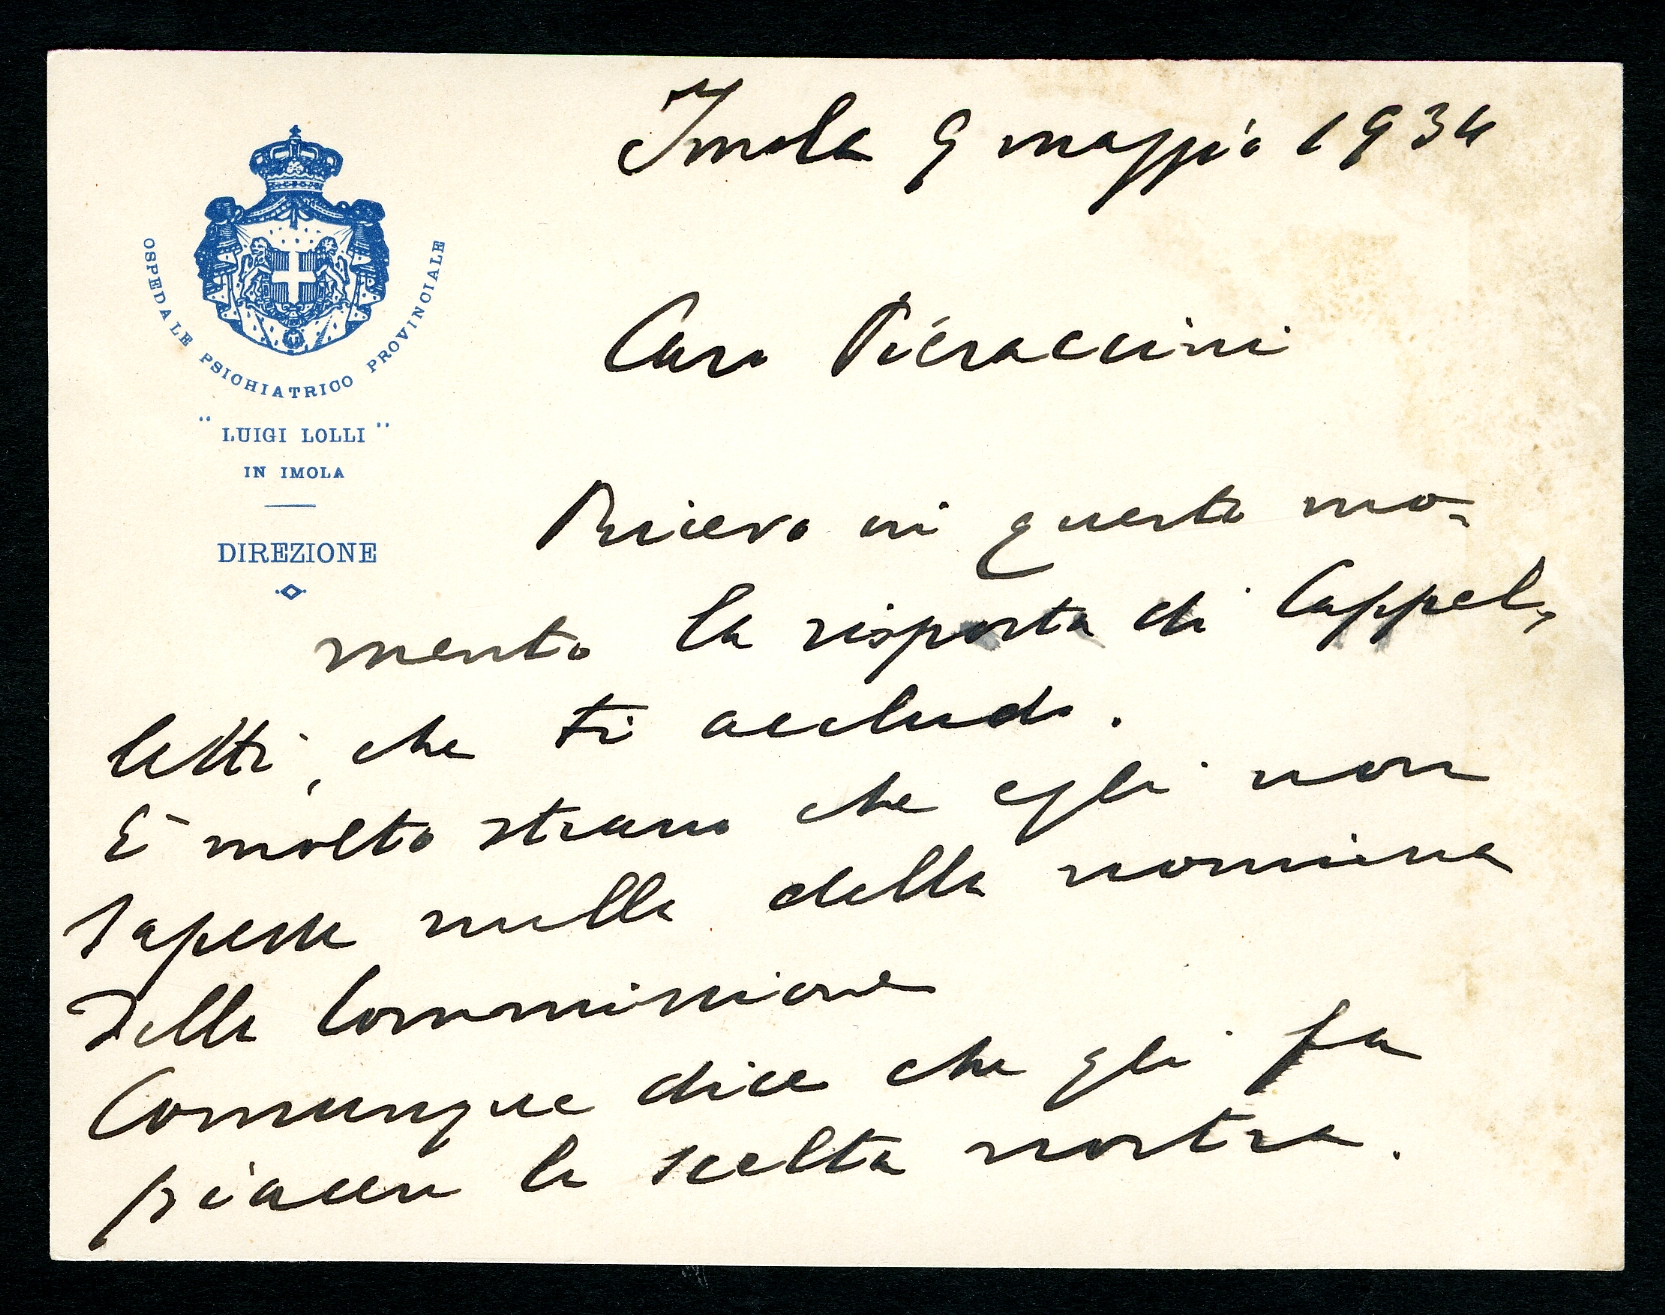 OSPEDALE PSICHIATRICO PROVINCIALE
"LUIGI LOLLI"
IN IMOLA
DIREZIONE
Imola 9 maggio 1934
Caro Pieraccini
Ricevo in questo mo-
mento la risposta di Cappel-
letti, che ti accludo.
E' molto strano che egli non
sapesse nulla della nomina
della Commissione
Comunque dice che gli fa
piacere la scelta nostra.